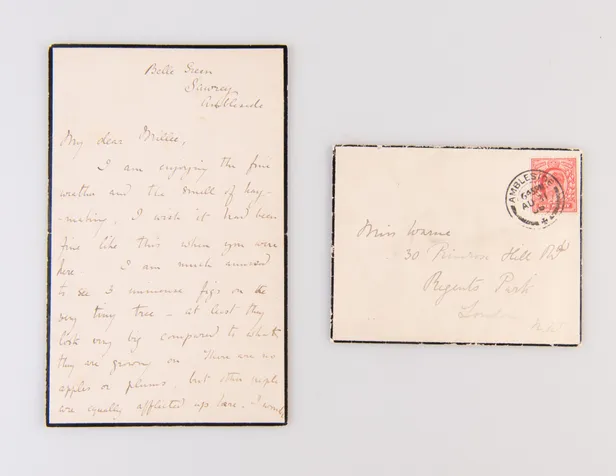 Belle Green
Sawrey
Ambleside
My dear Millie,
I am enjoying the fine
weather and the smell of hay-
making. I wish it had been
fine like this when you were
here. I am much amused
to see 3 immense figs on the
very tiny tree - at least they
look very big compared to what
they are growing on. There are no
apples or plums, but other people
are equally afflicted up here. I
Miss Warne
30 Primrose Hill Rd
Regents Park
London
N.W.
AMBLESIDE
AU